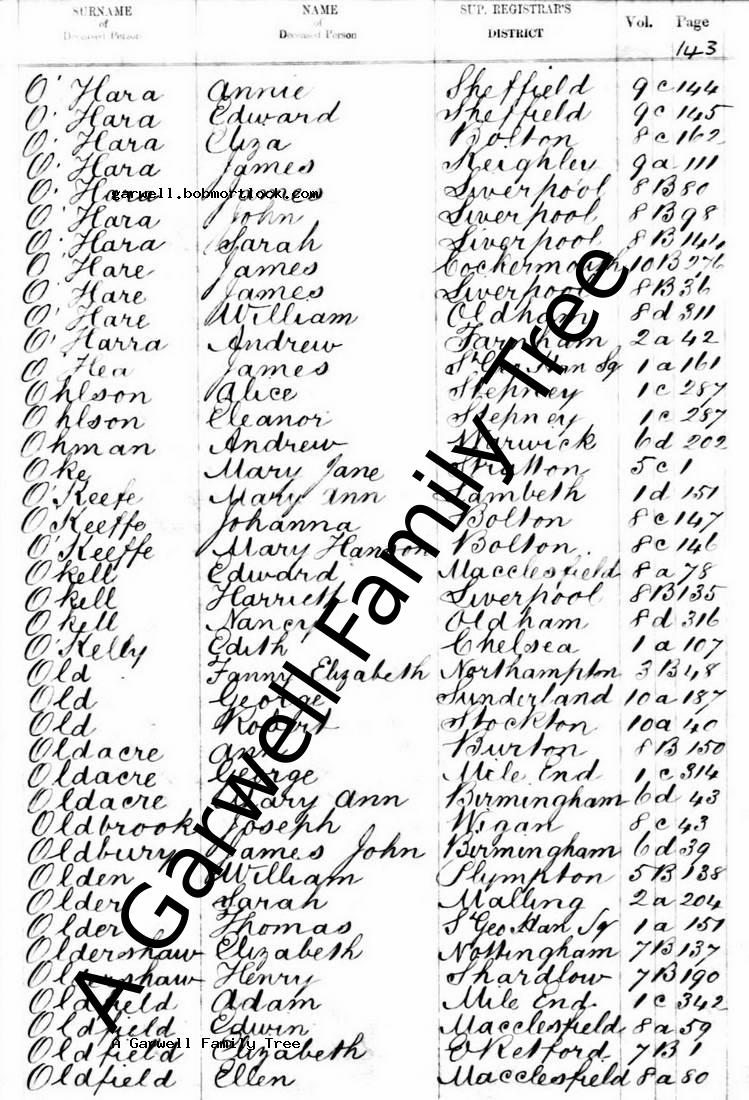 SURNAME of Deceased Person NAME of Deceased Person SUP. REGISTRAR'S DISTRICT Vol. Page
143
O'Hara Annie Sheffield 9c 144
O'Hara Edward Sheffield 9c 145
O'Hara Eliza Bolton 8c 162
O'Hara James Keighley 9a 111
O'Hara James Liverpool 8B 80
garwell.bobmortlock.com
O'Hara John Liverpool 8B 98
O'Hara Sarah Liverpool 8B 141
O'Hare James Cockermouth 10B 276
O'Hare James Liverpool 8B 36
O'Hare William Oldham 8d 311
O'Harra Andrew Farnham 2a 42
O'Hea James St Geo Han Sq 1a 161
Ohlson Alice Stepney 1c 287
Ohlson Eleanor Stepney 1c 287
Ohman Andrew Warwick 6d 202
Oke Mary Jane Stratton 5c 1
O'Keefe Mary Ann Lambeth 1d 151
O'Keeffe Johanna Bolton 8c 147
O'Keeffe Mary Hanson Bolton. 8c 146
Okell Edward Macclesfield 8a 78
Okell Harrieth Liverpool 8B 135
Okell Nancy Oldham 8d 316
O'Kelly Edith Chelsea 1a 107
Old Fanny Elizabeth Northampton 3B 48
Old George Sunderland 10a 187
Old Robert Stockton 10a 40
Oldacre Ann Burton 8B 150
Oldacre George Mile End 1c 314
Oldacre Mary Ann Birmingham 6d 43
Oldbrook Joseph Wigan 8c 43
Oldbury James John Birmingham 6d 39
Olden William Plympton 5B 138
Older Sarah Malling 2a 204
Older Thomas St Geo Han Sq 1a 151
Oldershaw Elizabeth Nottingham 7B 137
Oldershaw Henry Shardlow 7B 190
Oldfield Adam Mile End. 1c 342
Oldfield Edwin Macclesfield 8a 59
A Garwell Family Tree
Oldfield Elizabeth E Retford. 7B 1
Oldfield Ellen Macclesfield 8a 80
A Garwell Family Tree